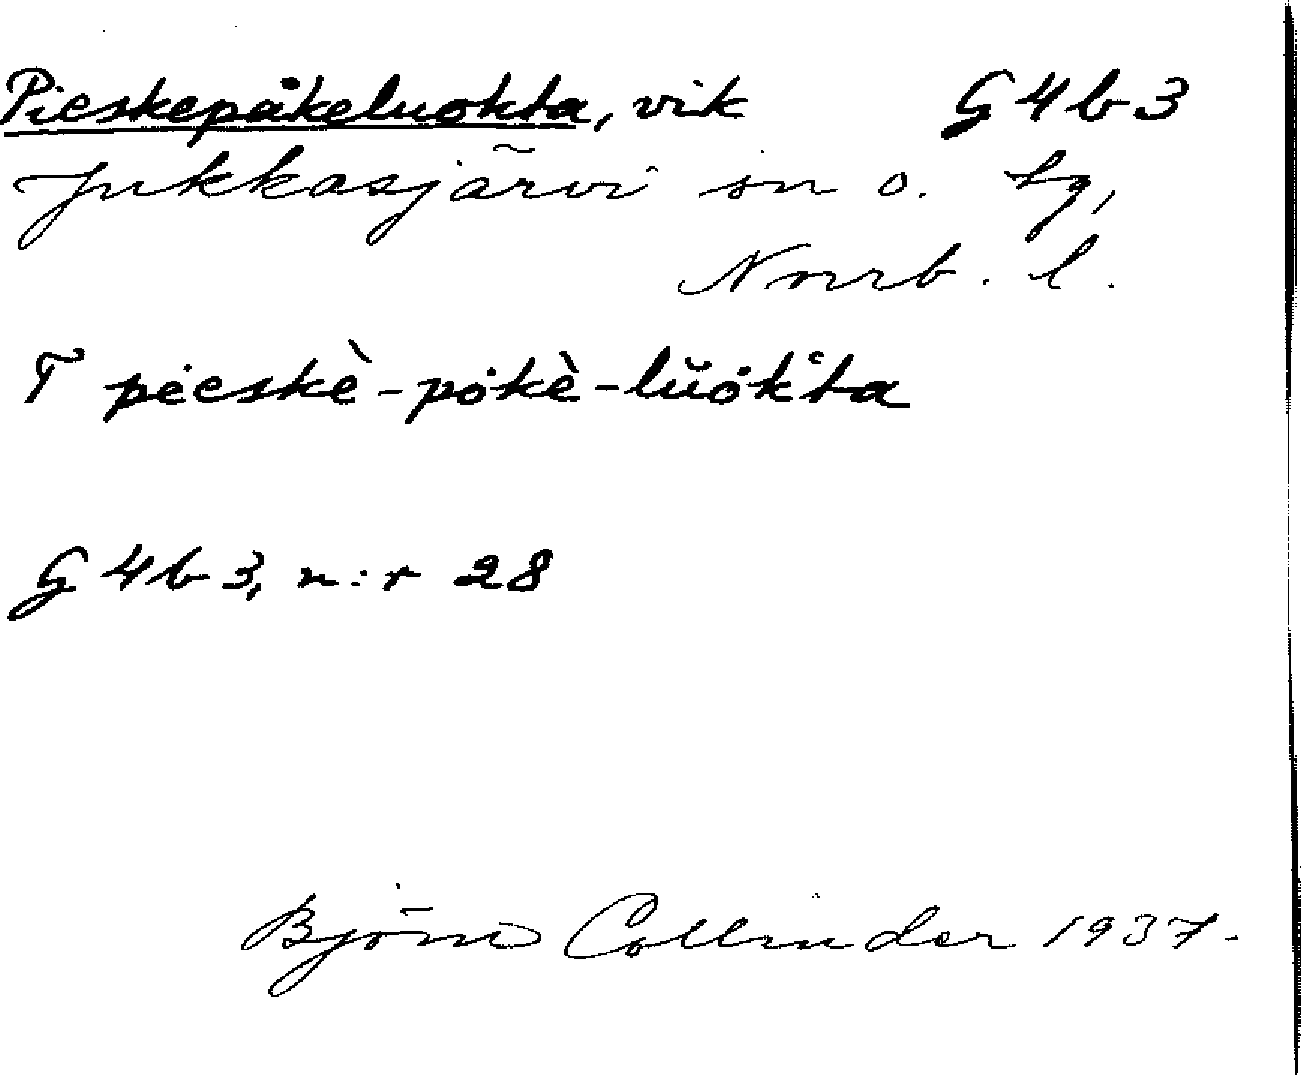 Pieskepåkeluokta, vik G 4 b 3
Jukkasjärvi sn o. tg,
Norrb. l.
T pieskè-pȯkè-lŭȯk'ta
G 4 b 3, n:r 28
Björn Collinder 1937.